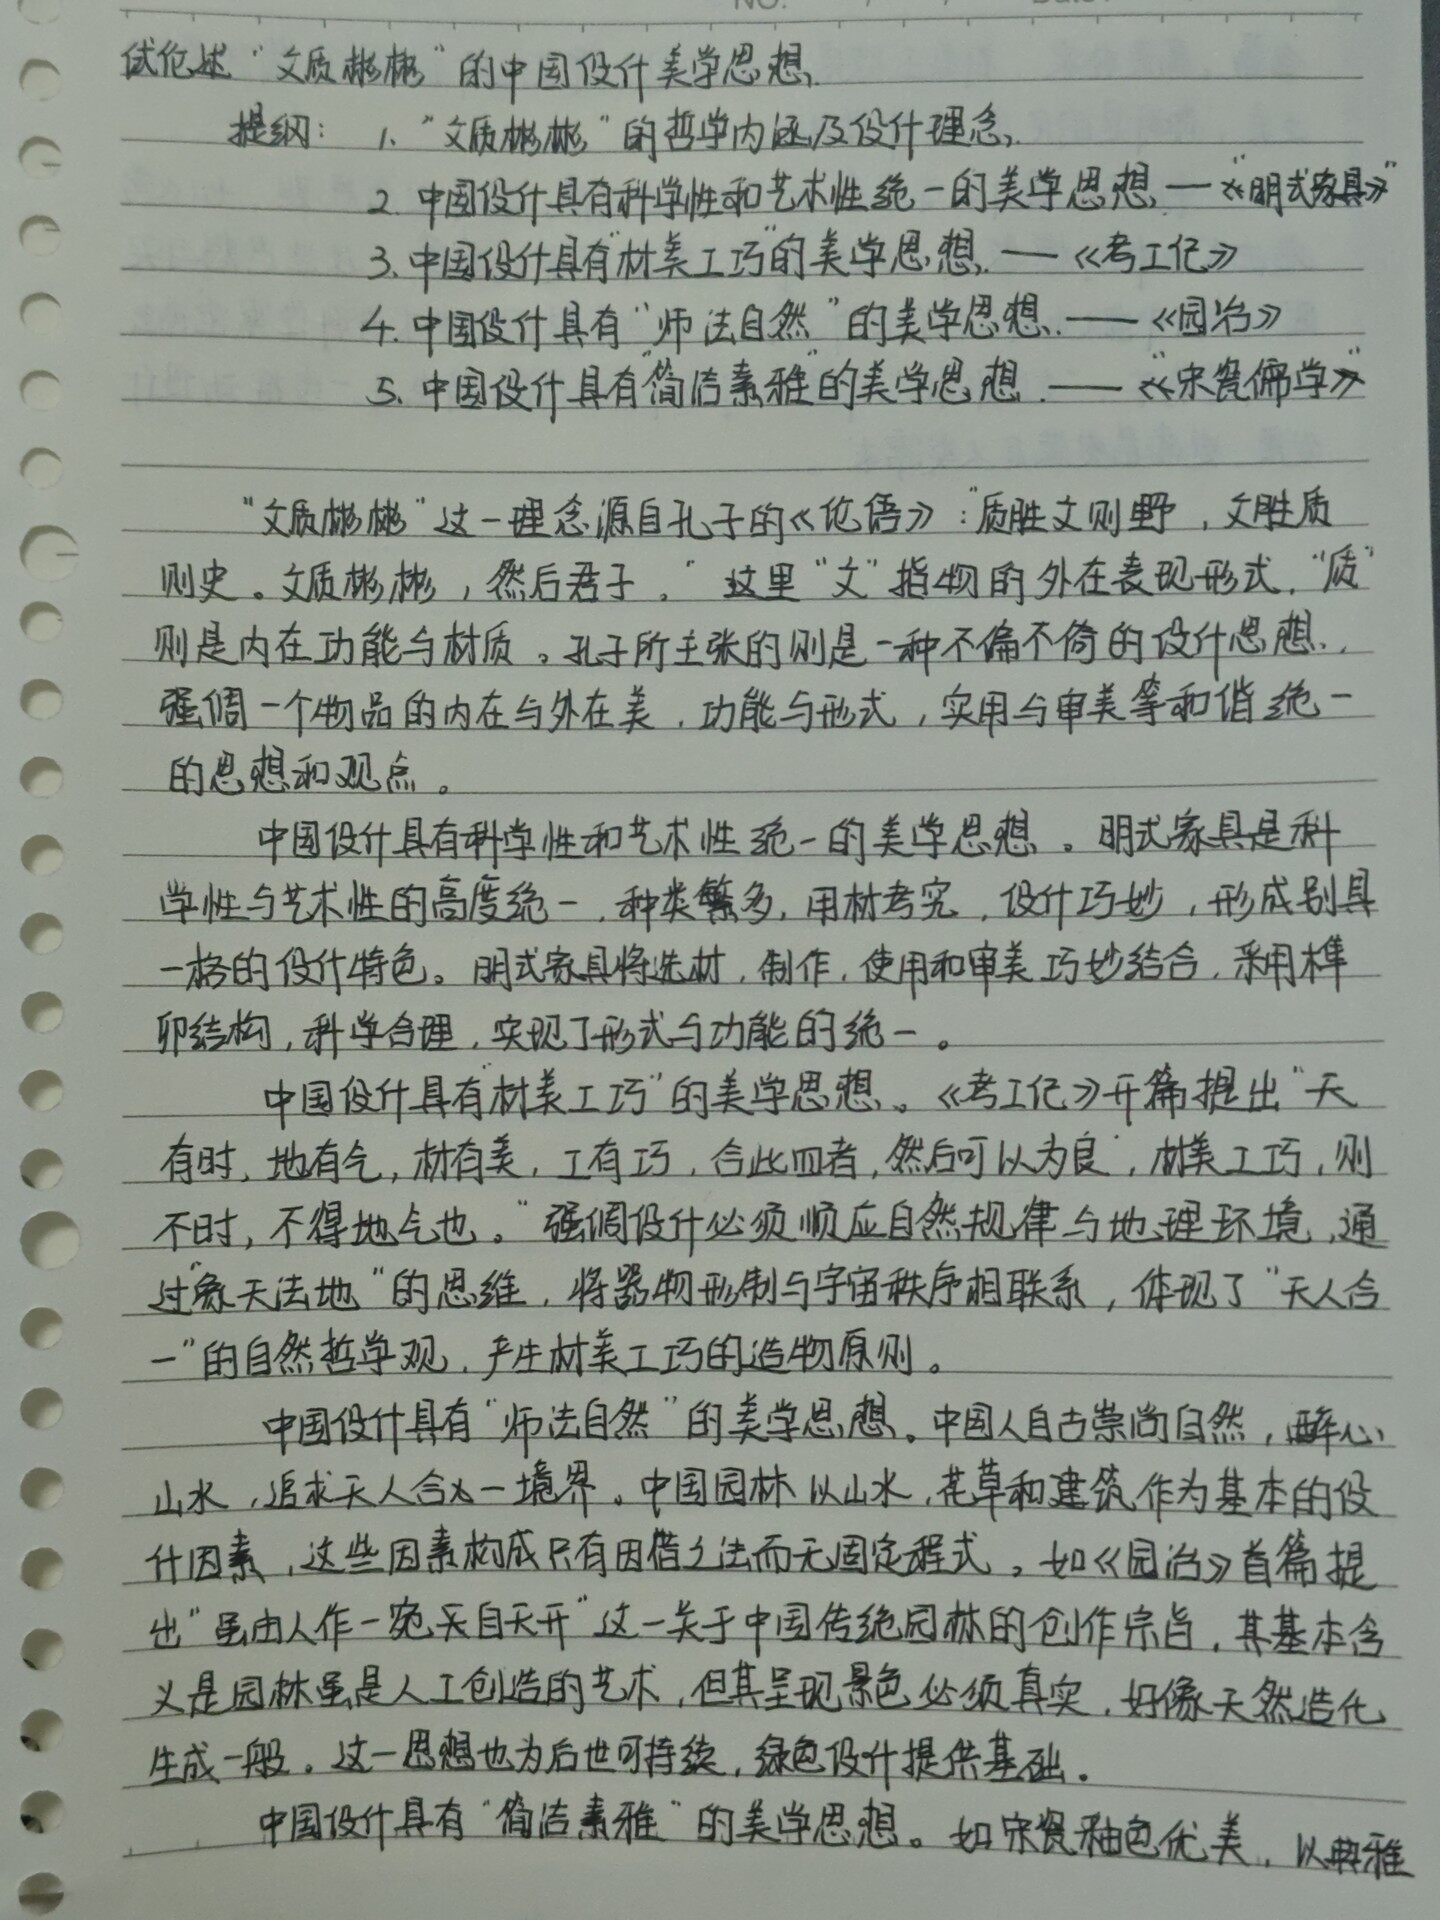 NO.
试论述“文质彬彬”的中国设计美学思想.
提纲： 1、“文质彬彬”的哲学内涵及设计理念.
2. 中国设计具有科学性和艺术性统一的美学思想 — “《明式家具》”
3. 中国设计具有“材美工巧”的美学思想. — 《考工记》
4. 中国设计具有“师法自然”的美学思想. — 《园冶》
5. 中国设计具有“简洁素雅”的美学思想. — “《宋瓷儒学》”
“文质彬彬”这一理念源自孔子的《论语》：“质胜文则野，文胜质
则史。文质彬彬，然后君子。”这里“文”指物的外在表现形式，“质”
则是内在功能与材质。孔子所主张的则是一种不偏不倚的设计思想，
强调一个物品的内在与外在美，功能与形式，实用与审美等和谐统一
的思想和观点。
中国设计具有科学性和艺术性统一的美学思想。明式家具是科
学性与艺术性的高度统一，种类繁多，用材考究，设计巧妙，形成别具
一格的设计特色。明式家具将选材，制作，使用和审美巧妙结合，采用榫
卯结构，科学合理，实现了形式与功能的统一。
中国设计具有“材美工巧”的美学思想。《考工记》开篇提出“天
有时，地有气，材有美，工有巧，合此四者，然后可以为良”，材美工巧，则
不时，不得地气也。”强调设计必须顺应自然规律与地理环境，通
过“象天法地”的思维，将器物形制与宇宙秩序相联系，体现了“天人合
一”的自然哲学观，产生材美工巧的造物原则。
中国设计具有“师法自然”的美学思想。中国人自古崇尚自然，醉心
山水，追求天人合一境界。中国园林以山水，花草和建筑作为基本的设
计因素，这些因素构成只有因借之法而无固定程式。如《园冶》首篇提
出“虽由人作一宛天自天开”这一关于中国传统园林的创作宗旨，其基本含
义是园林虽是人工创造的艺术，但其呈现景色必须真实，好像天然造化
生成一般。这一思想也为后世可持续，绿色设计提供基础。
中国设计具有“简洁素雅”的美学思想。如宋瓷釉色优美，以典雅